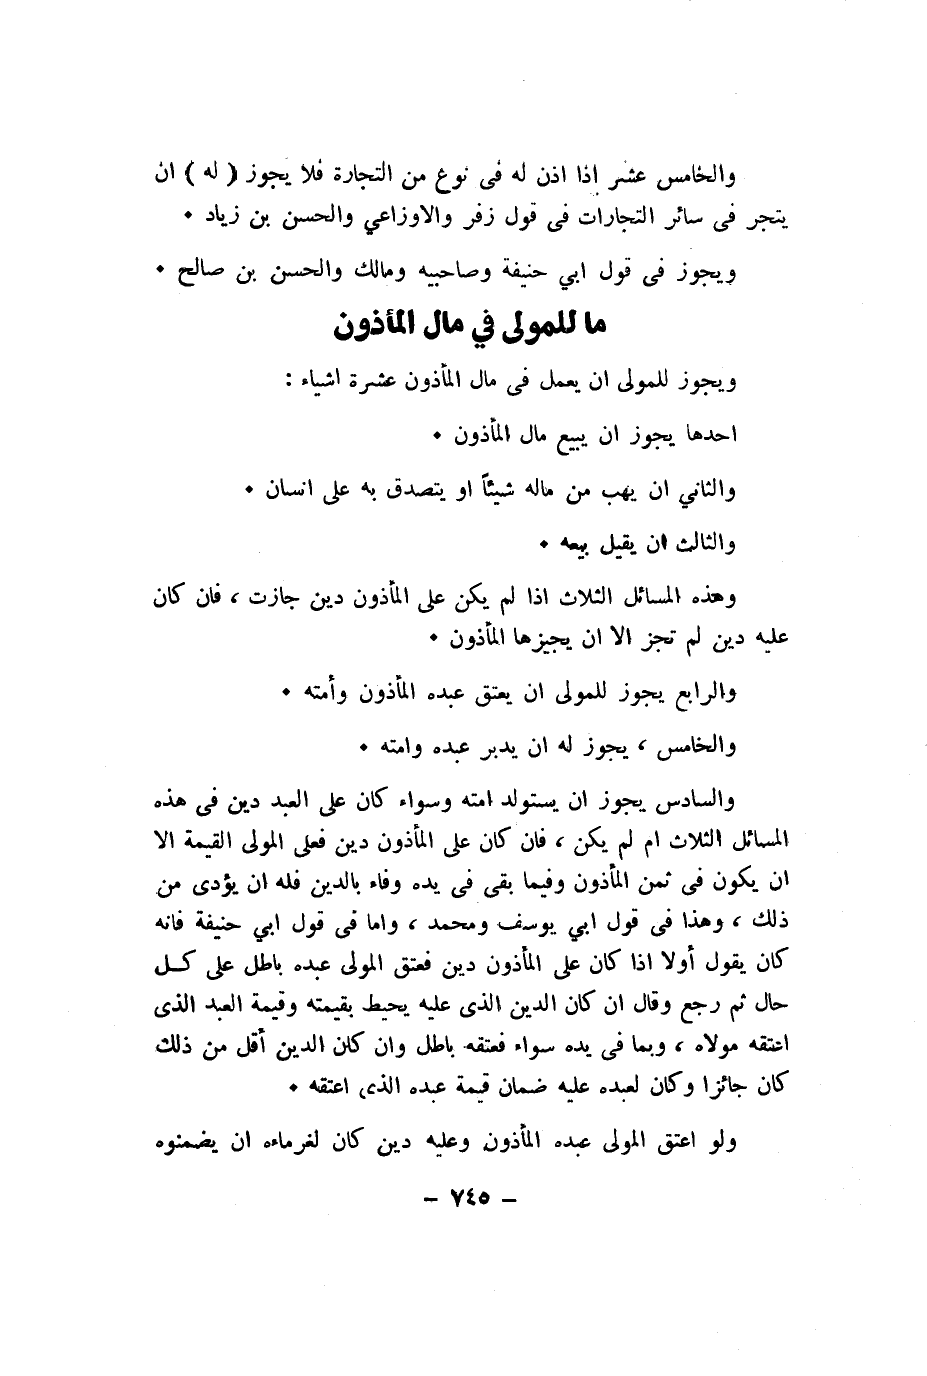 والخامس عشر إذا اذن له فى نوع من التجارة فلا يجوز ( له ) ان
يتجر فى سائر التجارات فى قول زفر والاوزاعي والحسن بن زياد ٠
ويجوز فى قول ابي حنيفة وصاحبيه ومالك والحسن بن صالح ٠
ما للمولى في مال المأذون
ويجوز للمولى ان يعمل فى مال المأذون عشرة اشياء :
احدها يجوز ان يبيع مال المأذون ٠
والثاني ان يهب من ماله شيئاً او يتصدق به على انسان ٠
والثالث ان يقيل بيعه ٠
وهذه المسائل الثلاث اذا لم يكن على المأذون دين جازت ، فان كان
عليه دين لم تجز الا ان يجيزها المأذون ٠
والرابع يجوز للمولى ان يعتق عبده المأذون وأمته ٠
والخامس ، يجوز له ان يدبر عبده وامته ٠
والسادس يجوز ان يستولد امته وسواء كان على العبد دين فى هذه
المسائل الثلاث ام لم يكن ، فان كان على المأذون دين فعلى المولى القيمة الا
ان يكون فى ثمن المأذون وفيما بقى فى يده وفاء بالدين فله ان يؤدى من
ذلك ، وهذا فى قول ابي يوسف ومحمد ، واما فى قول ابي حنيفة فانه
كان يقول أولا اذا كان على المأذون دين فعتق المولى عبده باطل على كـل
حال ثم رجع وقال ان كان الدين الذى عليه يحيط بقيمته وقيمة العبد الذى
اعتقه مولاه ، وبما فى يده سواء فعتقه باطل وان كان الدين أقل من ذلك
كان جائزا وكان لعبده عليه ضمان قيمة عبده الذى اعتقه ٠
ولو اعتق المولى عبده المأذون وعليه دين كان لغرماءه ان يضمنوه
– ٧٤٥ –